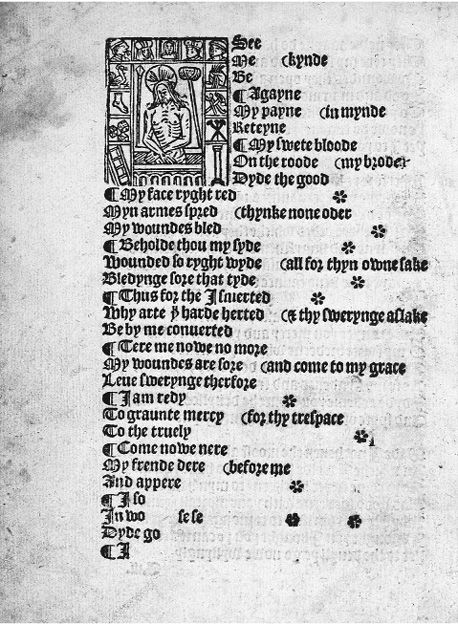 See
Me (kynde
Be
¶ Agayne
My payne (in mynde
Reteyne
¶ My swete bloode
On the roode (my broder
Dyde the good
¶ My face ryght red
Myn armes spred (thynke none oder
My woundes bled
¶ Beholde thou my syde
Wounded so ryght wyde (all for thyn owne sake
Bledynge sore that tyde
¶ Thus for the I smerted
Why arte yͧ harde herted (& thy swerynge aslake
Be by me conuerted
¶ Tere me nowe no more
My woundes are sore (and come to my grace
Leue swerynge therfore
¶ I am redy
To graunte mercy (for thy trespace
To the truely
¶ Come nowe nere
My frende dere (before me
And appere
¶ I so
In wo se se
Dyde go
¶ I